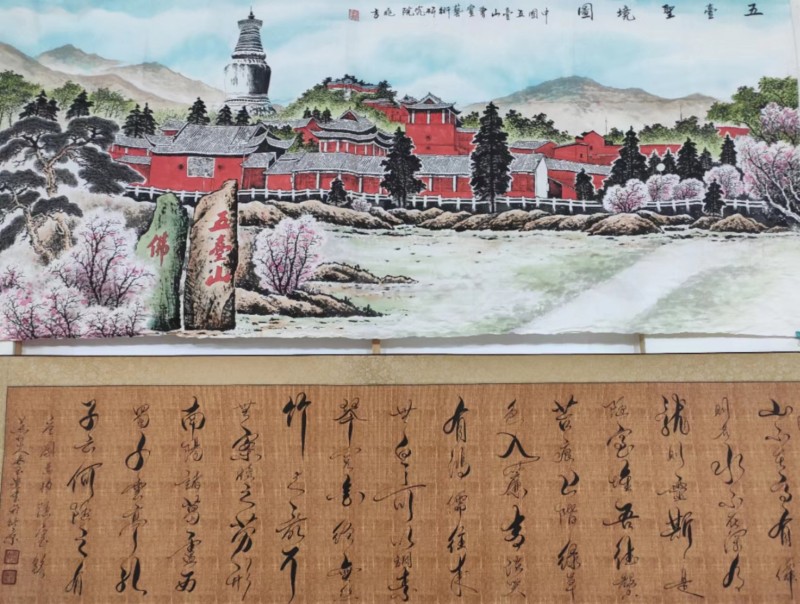 五臺聖境圖
中國五臺山書畫藝術研究院
五臺山
佛
山不在高有僊
則名水不在深有
龍則靈斯是
陋室惟吾德馨
苔痕上階綠草
色入簾青談笑
有鴻儒往來
無白丁可以調素
琴閱金經無絲
竹之亂耳
無案牘之勞形
南陽諸葛廬西
蜀子雲亭孔
子云何陋之有